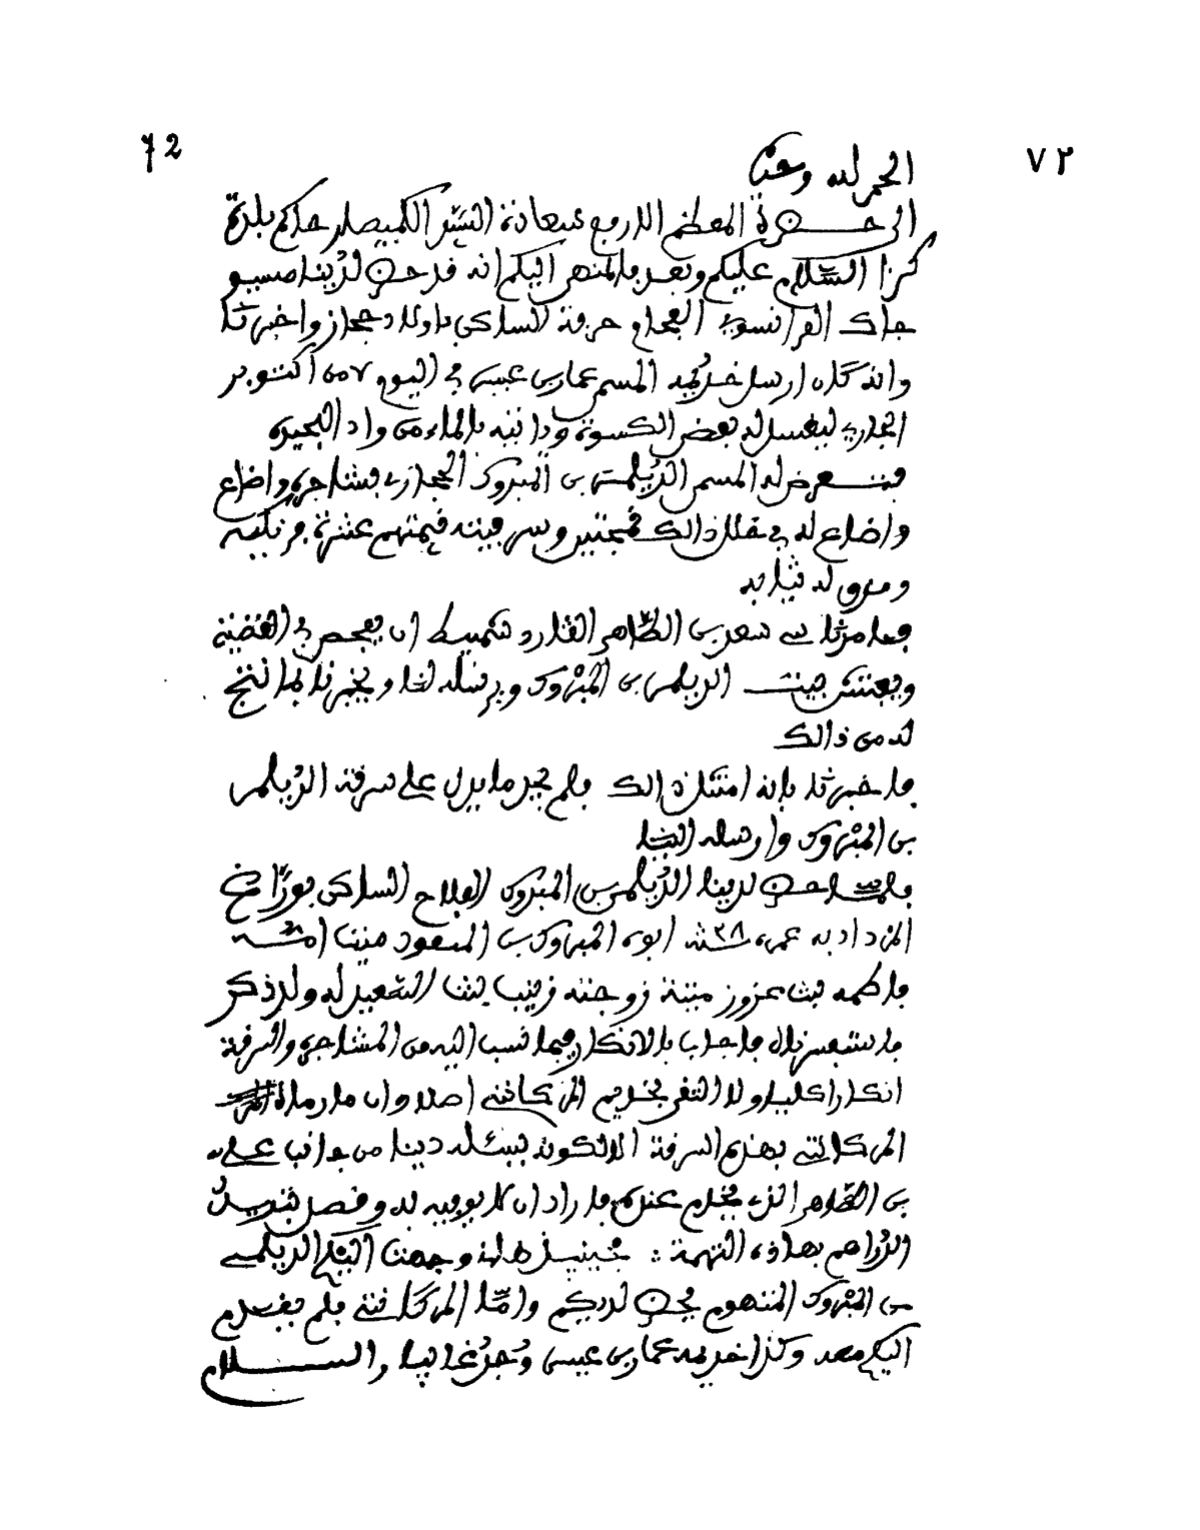 72
٧٢
الحمد لله وحده
الى حضرة المعظم الارفع سعادة السيد الكبيطان حاكم بلدة
كذا السلام عليكم وبعد فالمنهى اليكم انه قد حضر لدينا مسيو
جاك الفرانسوي حرفة الساكن باولاد حجاز واخبرنا
وانه كان ارسل خديمه المسمى عمار بن عيسى في اليوم ٧ من اكتوبر
الجاري ليغسل له بعض الكسوة ودا بالماء من واد البحيرة
فتعرض له المسمى الزيلمي بن المبروك الحجازي فتشاجر واضاع
واضاع له في خلال ذالك قمجتين وسرفيته قيمتهم عشرة فرنكية
ومزق له ثيابه
فامرنا سي سعد بن الطاهر القارد شمبيط ان يفحص في القضية
ويفتش بيت الزيلمي بن المبروك ويرسله لنا ويخبرنا بما نتج
له من ذالك
فاخبرنا بانه امتثل ذالك فلم يجد ما يدل على سرقة الزيلمي
بن المبروك وارسله الينا
فلما حضر لدينا الزيلمي بن المبروك الفلاح الساكن
المزداد به عمره ٢٨ سنة ابوه المبروك بن المسعود ميت امه
فاطمة بنت عزوز ميتة زوجته زينب بنت السعيد له ولد ذكر
فاستفسرناه فاجاب بالانكار فيما نسب اليه من المشاجرة والسرقة
انكارا كليا ولا التقى بخديم المركانتي اصلا وان ما رماه
المركانتي بهذه السرقة الا لكونه يسئله دينا من جانب
بن الطاهر الذي يخدم عنده فاراد ان لا يوفيه له وقصد بتبديل
الدراهم بهاذه التهمة : فحينئذ هانا وجهت اليكم الزيلمي
بن المبروك المتهوم يحضر لديكم واما المركانتي فلم يقدم
اليكم معه وكذا خديمه عمار بن عيسى وجد غائبا والسلام